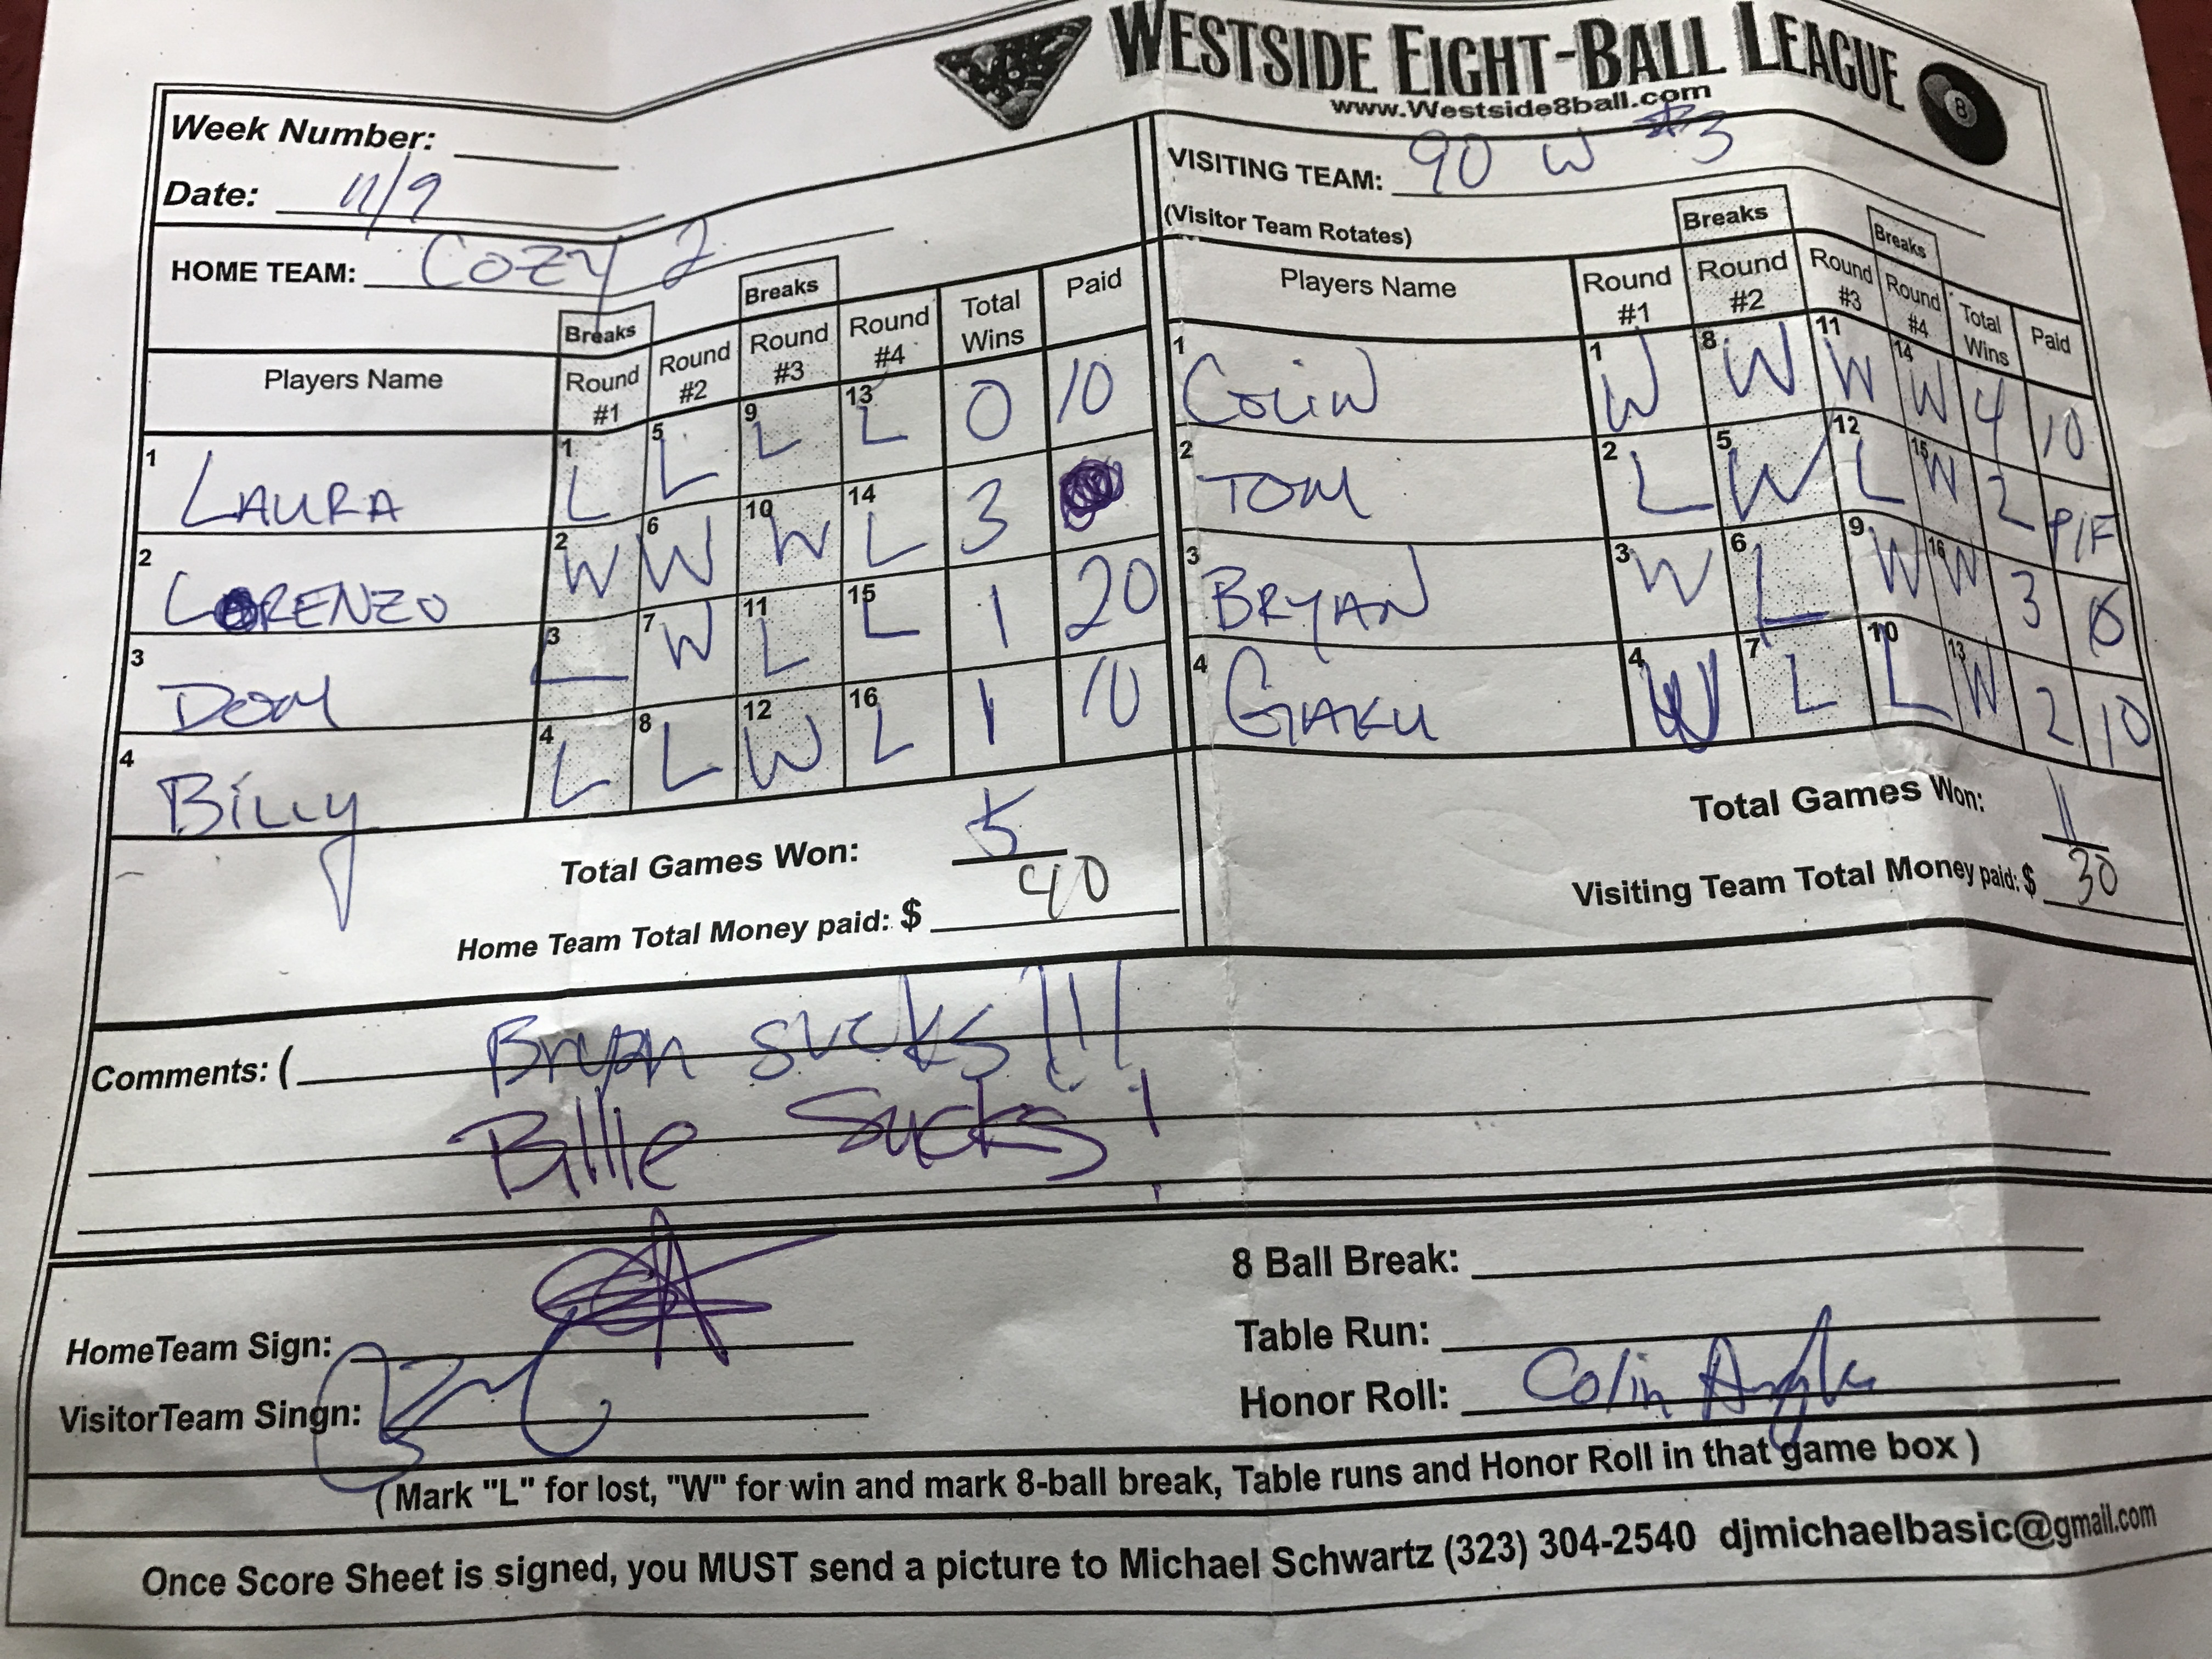 WESTSIDE EIGHT-BALL LEAGUE
www.Westside8ball.com
8
Week Number:
Date: 11/9
HOME TEAM: COZY 2
Players Name Breaks Round #1 Round #2 Breaks Round #3 Round #4 Total Wins Paid
1 LAURA 1 L 5 L 9 L 13 L 0 10
2 LORENZO 2 W 6 W 10 W 14 L 3
3 DOM 3 L 7 W 11 L 15 L 1 20
4 BILLY 4 L 8 L 12 W 16 L 1 10
Total Games Won: 5
Home Team Total Money paid: $ 40
VISITING TEAM: 90 W #3
(Visitor Team Rotates)
Players Name Round #1 Breaks Round #2 Round #3 Breaks Round #4 Total Wins Paid
1 COLIN 1 W 8 W 11 W 14 W 4 10
2 TOM 2 L 5 W 12 L 15 W 2 P/F
3 BRYAN 3 W 6 L 9 W 16 W 3
4 GAKU 4 W 7 L 10 L 13 W 2 10
Total Games Won: 11
Visiting Team Total Money paid: $ 30
Comments: ( Bryan sucks!!!
Billie Sucks!
HomeTeam Sign:
VisitorTeam Singn:
8 Ball Break:
Table Run:
Honor Roll: Colin
(Mark "L" for lost, "W" for win and mark 8-ball break, Table runs and Honor Roll in that game box )
Once Score Sheet is signed, you MUST send a picture to Michael Schwartz (323) 304-2540 djmichaelbasic@gmail.com